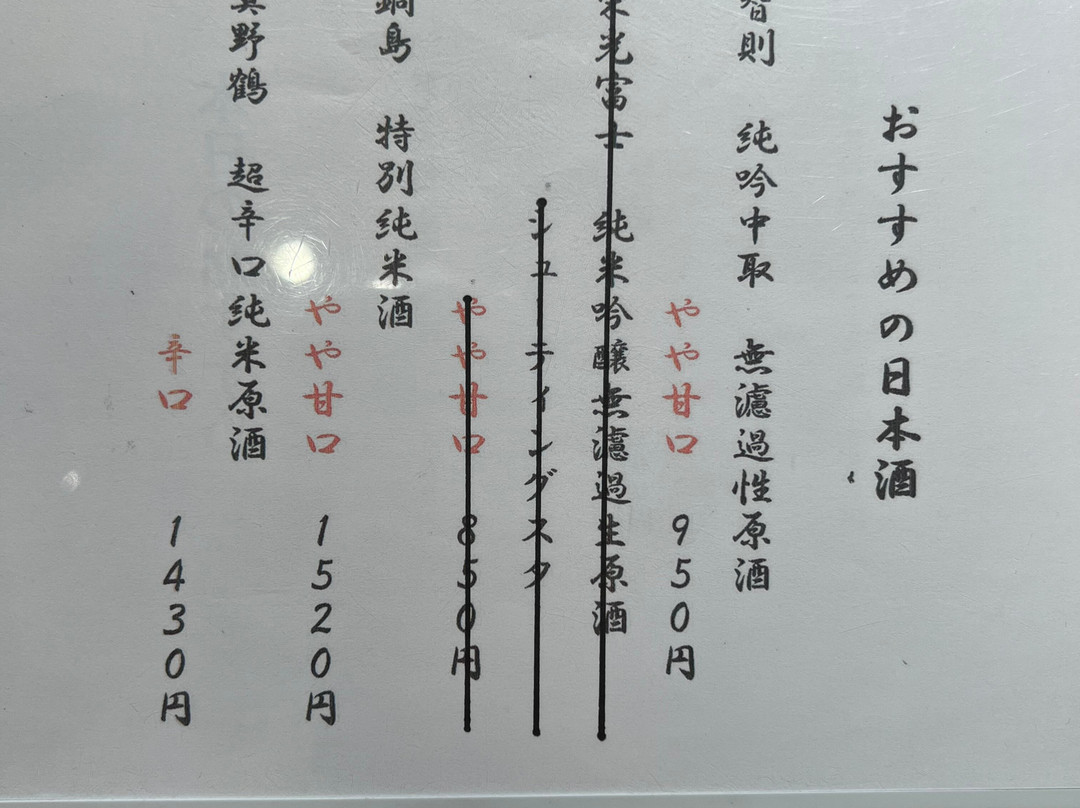 おすすめの日本酒
智則 純吟中取 無濾過性原酒
やや甘口 950円
栄光富士 純米吟醸無濾過生原酒
シューティングスター
やや甘口 850円
鍋島 特別純米酒
やや甘口 1520円
真野鶴 超辛口純米原酒
辛口 1430円